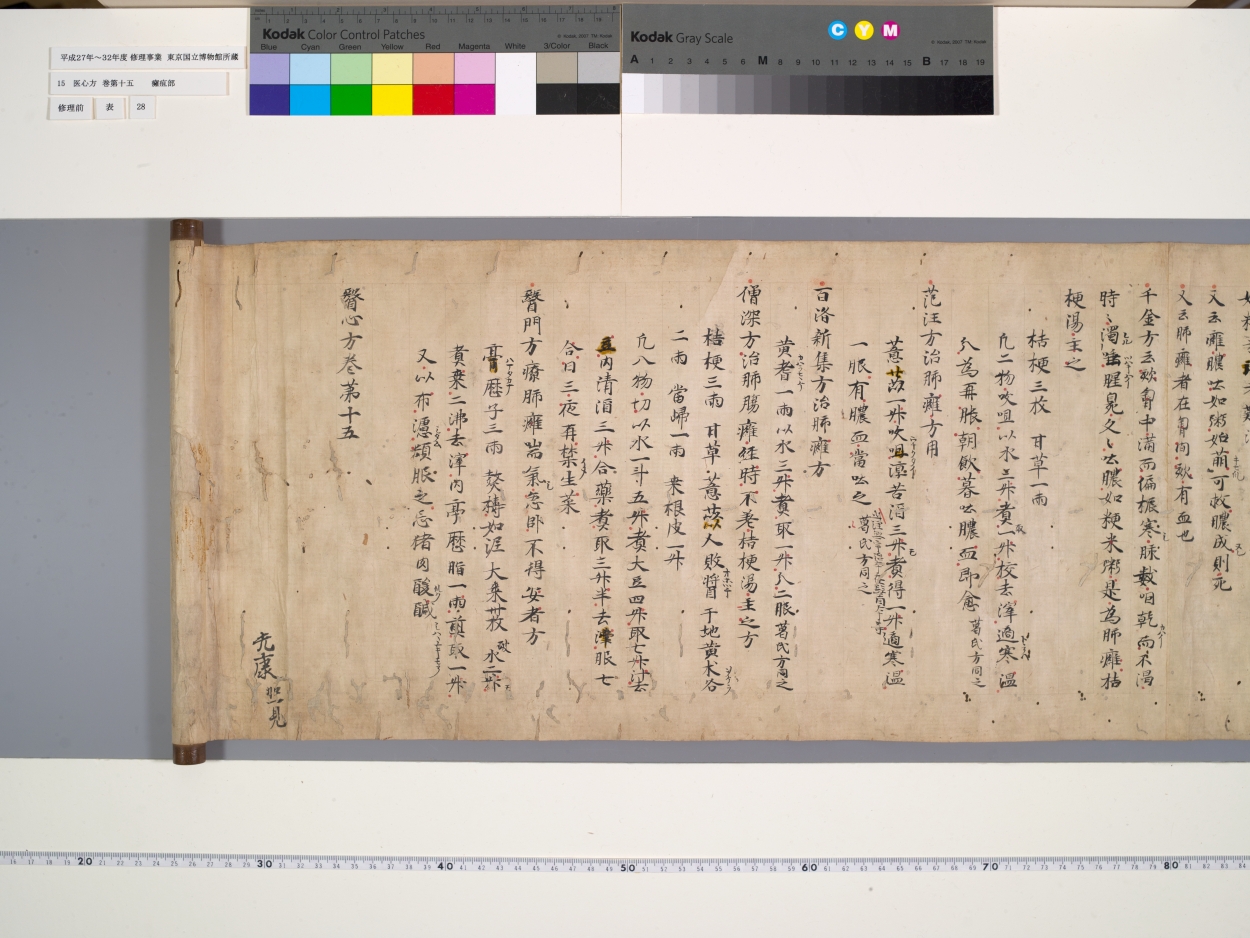 平成27年～32年度 修理事業 東京国立博物館所蔵
15 医心方 巻第十五 癰疽部
修理前 表 28
Kodak Color Control Patches
Blue Cyan Green Yellow Red Magenta White 3/Color Black
Kodak Gray Scale
C Y M
A 1 2 3 4 5 6 M 8 9 10 11 12 13 14 15 B 17 18 19
又云癰膿呿如粥始萠可救膿成則死
又云肺癰者在胷間欬有血也
千金方云欬胷中滿而偏振寒脉數咽乾而不渇
時〻濁唾腥臭久〻呿膿如粳米粥是為肺癰桔
梗湯主之
桔梗三枚 甘草一兩
凡二物㕮咀以水三升煮一升校去滓適寒温
分為再服朝飲暮呿膿血即愈 葛氏方同之
范汪方治肺癰方用
薏苡一升㕮咀淳苦酒三升煮得一升適寒温
一服有膿血當呿之 葛氏方同之
百濟新集方治肺癰方
黄耆一兩以水三升煮取一升分二服 葛氏方同之
僧深方治肺腸癰經時不差桔梗湯主之方
桔梗三兩 甘草 薏苡人 敗醤 干地黄 朮各
二兩 當歸一兩 桒根皮一升
凡八物切以水一斗五升煮大豆四升取七升汁去
豆内清酒三升合藥煮取三升半去滓服七
合日三夜再禁生菜
醫門方療肺癰喘氣急卧不得安者方
亭歴子三兩 熬擣如涅 大棗廿枚 破 水二升
煮棗二沸去滓内亭歴脂一兩煎取一升
又以布濾頓服之忌猪肉酸醎
醫心方巻第十五
光康
一見
20 30 40 50 60 70 80